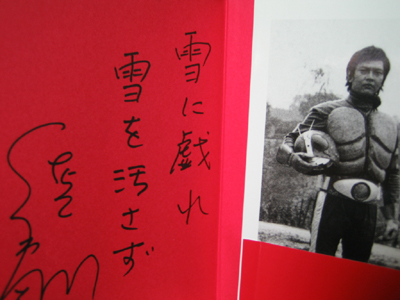 雪に戯れ
雪を汚さず